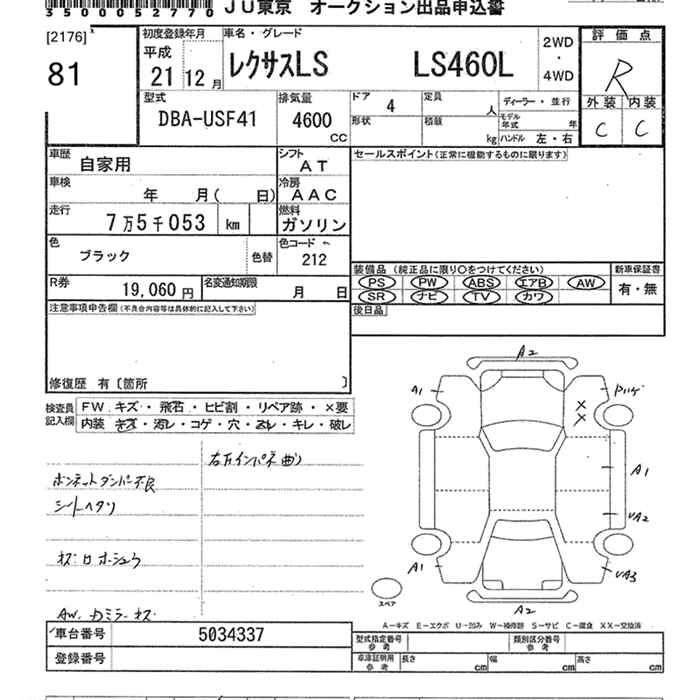 350052770
JU東京 オークション出品申込書
[2176]
81
初度登録年月
平成
21 12月
車名・グレード
レクサスLS LS460L
2WD
・
4WD
評価点
R
外装 内装
C C
型式
DBA-USF41
排気量
4600
CC
ドア 4
定員 人
形状
積載 kg
ディーラー・並行
モデル年式 年
ハンドル 左・右
車歴
自家用
シフト
AT
セールスポイント(正常に機能するものに限ります)
車検
年 月( 日)
冷房
AAC
走行
7万5千053 km
燃料
ガソリン
色
ブラック
色替
色コード
212
装備品 (純正品に限り○をつけてください)
PS PW ABS エアB AW
SR ナビ TV カワ
新車保証書
有・無
R券
19,060円
名変通知期限
月 日
後日品
注意事項申告欄(不具合内容等は具体的に記入して下さい)
修復歴 有〔箇所 〕
検査員記入欄
FW キズ・飛石・ヒビ割・リペア跡・×要
内装 キズ・汚レ・コゲ・穴・スレ・キレ・破レ
右方インパネ曲り
ボンネットダンパー不良
シートヘタリ
キズ:ロ ホーシュウ
AW. カミラー キズ
A2
A1
A1
UA2
A1
UA3
A2
スペア
A－キズ E－エクボ U－凹み W－補修跡 S－サビ C－腐食 XX－交換済
車台番号 5034337
登録番号
型式指定番号
参考
類別区分番号
参考
車庫証明用
参考
長さ cm 幅 cm 高さ cm